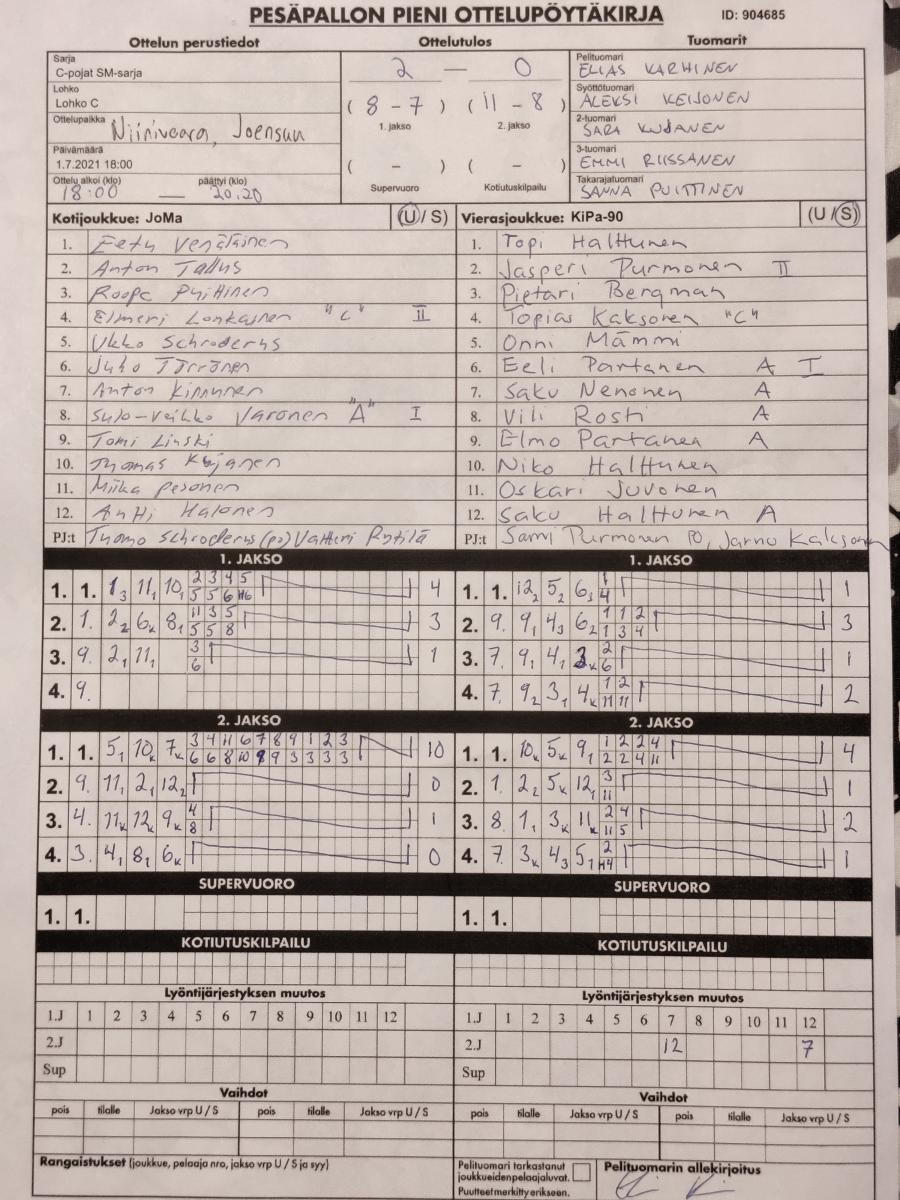 PESÄPALLON PIENI OTTELUPÖYTÄKIRJA ID: 904685
Ottelun perustiedot
Sarja
C-pojat SM-sarja
Lohko
Lohko C
Ottelupaikka Niinivaara, Joensuu
Päivämäärä
1.7.2021 18:00
Ottelu alkoi (klo) päättyi (klo)
18:00 — 20.20
Ottelutulos
2 — 0
( 8 - 7 ) ( 11 - 8 )
1. jakso 2. jakso
( - ) ( - )
Supervuoro Kotiutuskilpailu
Tuomarit
Pelituomari
ELIAS KARHINEN
Syöttötuomari
ALEKSI KEIJONEN
2-tuomari
SARA KUJANEN
3-tuomari
EMMI RIISSANEN
Takarajatuomari
SANNA PUITTINEN
Kotijoukkue: JoMa (U / S)
1. Eetu Venäläinen
2. Anton Tallus
3. Roope Puittinen
4. Elmeri Lonkainen "C" II
5. Ukko Schroderus
6. Juho Törrönen
7. Anton Kinnunen
8. Sulo-Veikko Varonen "A" I
9. Tomi Linski
10. Thomas Kuljanen
11. Miika Pesonen
12. Antti Halonen
PJ:t Tuomo Schroderus (po) Valtteri Rytilä
Vierasjoukkue: KiPa-90 (U / S)
1. Topi Halttunen
2. Jasperi Purmonen II
3. Pietari Bergman
4. Topias Kaksonen "C"
5. Onni Mämmi
6. Eeli Partanen A I
7. Saku Nenonen A
8. Vili Rosti A
9. Elmo Partanen A
10. Niko Halttunen
11. Oskari Juvonen
12. Saku Halttunen A
PJ:t Sami Purmonen PO, Jarno Kaksonen
1. JAKSO
1. 1. 1 3 11 1 10 1 2 3 4 5 4
5 5 6
2. 1. 2 2 6 K 8 1 11 3 5 3
5 5 8
3. 9. 2 1 11 1 3 1
6
4. 9.
1. JAKSO
1. 1. 12 2 5 2 6 3 1 1
4
2. 9. 9 1 4 3 6 2 1 1 2 3
1 3 4
3. 7. 9 1 4 1 3 K 2 1
6
4. 7. 9 2 3 1 4 K 1 2 2
11 11
2. JAKSO
1. 1. 5 1 10 K 7 K 3 4 11 6 7 8 9 1 2 3 10
6 6 8 10 8 9 3 3 3 3
2. 9. 11 1 2 1 12 2 0
3. 4. 11 K 12 K 9 K 4 1
8
4. 3. 4 1 8 1 6 K 0
2. JAKSO
1. 1. 10 K 5 K 9 1 1 2 2 4 4
2 2 4 11
2. 1. 2 2 5 K 12 1 3 1
11
3. 8. 1 1 3 K 11 K 2 4 2
11 5
4. 7. 3 K 4 3 5 1 2 1
SUPERVUORO
1. 1.
SUPERVUORO
1. 1.
KOTIUTUSKILPAILU
KOTIUTUSKILPAILU
Lyöntijärjestyksen muutos
1.J 1 2 3 4 5 6 7 8 9 10 11 12
2.J
Sup
Lyöntijärjestyksen muutos
1.J 1 2 3 4 5 6 7 8 9 10 11 12
2.J 12 7
Sup
Vaihdot
pois tilalle Jakso vrp U / S pois tilalle Jakso vrp U / S
Vaihdot
pois tilalle Jakso vrp U / S pois tilalle Jakso vrp U / S
Rangaistukset (joukkue, pelaaja nro, jakso vrp U / S ja syy)
Pelituomari tarkastanut
joukkueiden pelaajaluvat.
Puutteet merkitty erikseen.
Pelituomarin allekirjoitus